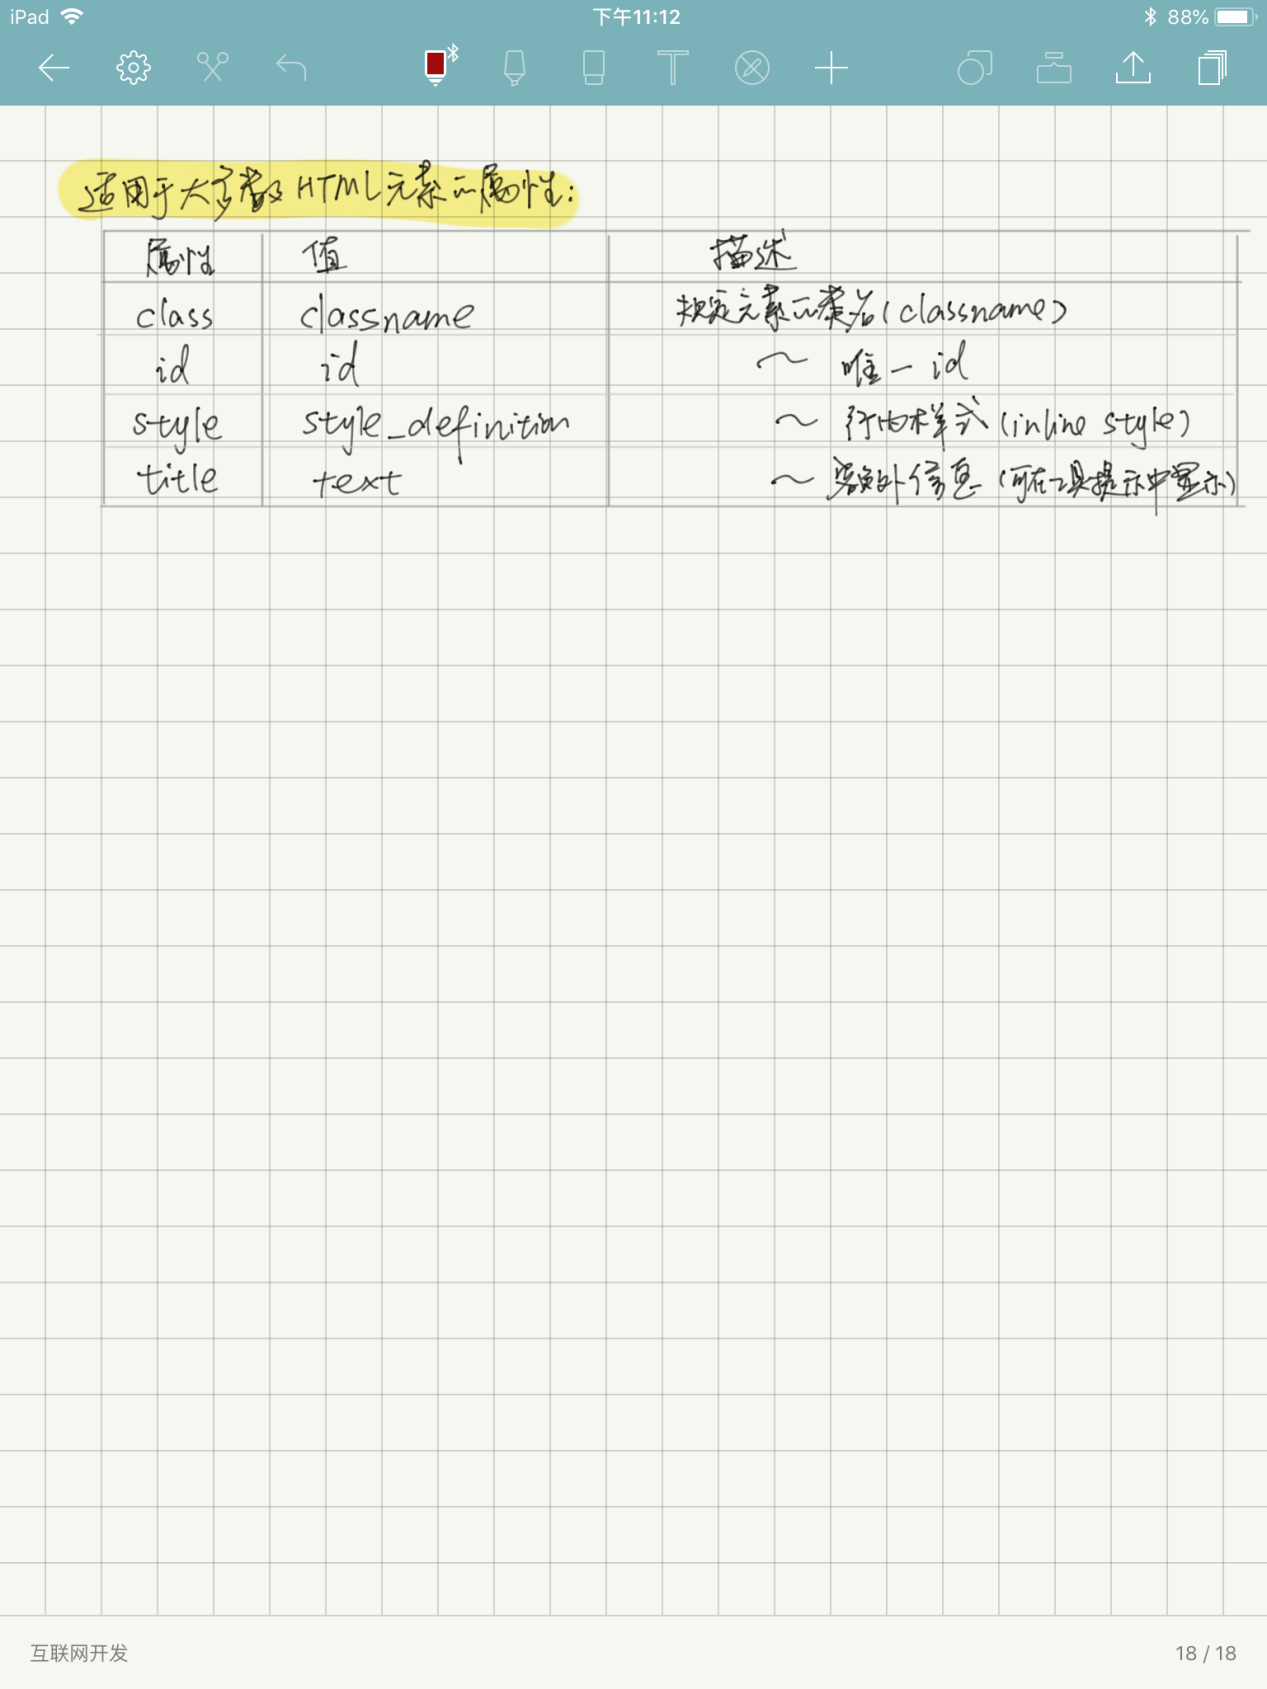 iPad 下午11:12 88%
适用于大多数HTML元素的属性:
属性 值 描述
class classname 规定元素的类名(classname)
id id ~ 唯一id
style style_definition ~ 行内样式(inline style)
title text ~ 额外信息(可在工具提示中显示)
互联网开发 18 / 18